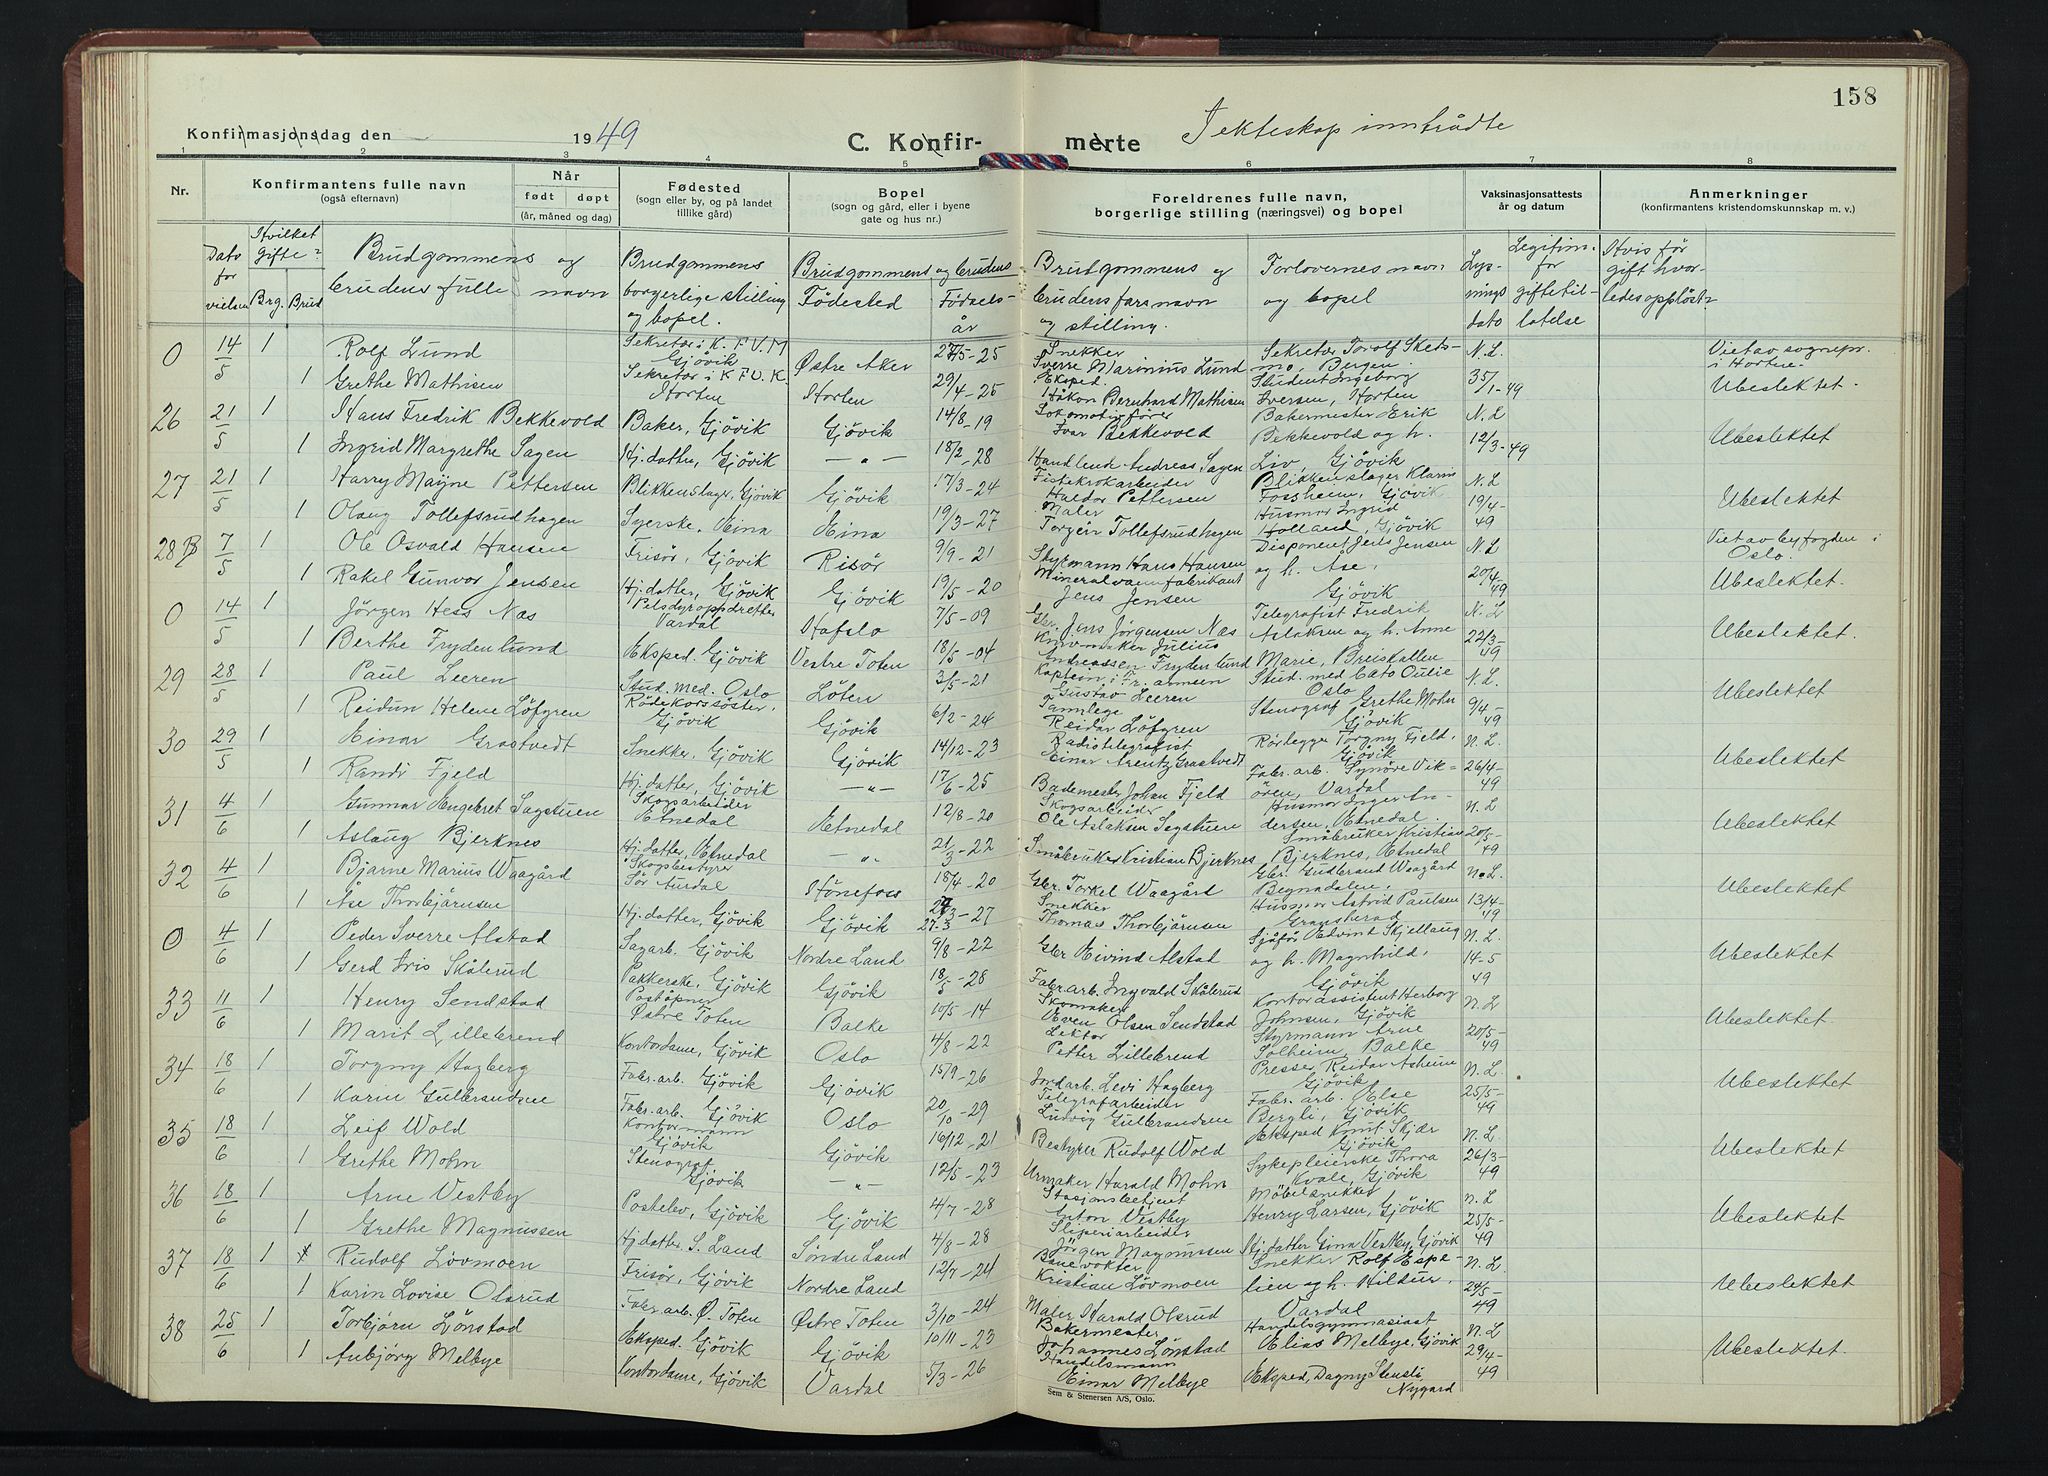 158
Konfirmasjonsdag den 1949 C. Konfirmerte I ekteskap inntrådte
1 2 3 4 5 6 7 8
Nr. Konfirmantens fulle navn (også efternavn) Når født døpt (år, måned og dag) Fødested (sogn eller by, og på landet tillike gård) Bopel (sogn og gård, eller i byene gate og hus nr.) Foreldrenes fulle navn, borgerlige stilling (næringsvei) og bopel Vaksinasjonsattests år og datum Anmerkninger (konfirmantens kristendomskunnskap m. v.)
Dato for vielsen Hvilket gifte? Brg. Brud Brudgommens og brudens fulle navn Brudgommens borgerlige stilling og bopel. Brudgommens og brudens Fødested Fødselsår Brudgommens og brudens fars navn og stilling. Forlovernes navn og bopel Lysnings dato Legitim. for giftetillatelse Hvis før gift hvorledes oppløst?
0 14/5 1 Rolf Lund Sekretær i K.F.U.M Gjövik Østre Aker 27/5-25 Snekker Sverre Marinius Lund Sekretær Torolf Sketsmo, Bergen N.L. Viet av sognepr. i Horten
1 Grethe Mathisen Sekretær i K.F.U.K. Horten Horten 29/4-25 Eksped. Håkon Bernhard Mathisen Student Ingeborg Iversen, Horten 35/1-49 Ubeslektet.
26 21/5 1 Hans Fredrik Bekkevold Baker, Gjövik Gjövik 14/8-19 Lokomotivfører Ivar Bekkevold Bakermester Erik Bekkevold og h. N.L Ubeslektet
1 Ingrid Margrethe Sagen Hj. datter, Gjövik -"- 18/2-28 Handlende Andreas Sagen Liv, Gjövik 12/3-49
27 21/5 1 Harry Mayne Pettersen Blikkenslager, Gjövik Gjövik 17/3-24 Fiskekrokarbeider Haldor Pettersen Blikkenslager Klarin Fossheim, Gjövik N.L Ubeslektet
1 Olaug Tollefsrudhagen Syerske, Eina Eina 19/3-27 Maler Torgeir Tollefsrudhagen Husmor Ingrid Holland, Gjövik 19/4-49
28 B 7/5 1 Ole Osvald Hansen Frisör, Gjövik Risör 9/9-21 Styrmann Hans Hansen Disponent Jens Jensen N.L Viet av byfogden i Oslo.
1 Rakel Gunvor Jensen Hj. datter, Gjövik Gjövik 19/5-20 Mineralvannfabrikant Jens Jensen og h. Åse, Gjövik 20/4-49 Ubeslektet.
0 14/5 1 Jörgen Hess Næs Pelsdyroppdretter Vardal Hafslo 7/5-09 Gbr. Jens Jörgensen Næs Telegrafist Fredrik Aslaksen og h. Anne N.L Ubeslektet.
1 Berthe Frydenlund Eksped. Gjövik Vestre Toten 18/5-04 Kurvmaker Julius Andreassen Frydenlund Marie, Breiskallen 22/3-49
29 28/5 1 Paul Leeren Stud. med. Oslo Löten 3/5-21 Kaptein i Fr. armeen Gustav Leeren Stud. med Cato Oulie Oslo N.L. Ubeslektet
1 Reidun Helene Löfgren Rödekorssöster, Gjövik Gjövik 6/2-24 Tannlege Reidar Löfgren Stenograf Grethe Mohn Gjövik 9/4-49
30 29/5 1 Einar Grastvedt Snekker, Gjövik Gjövik 14/12-23 Radiotelegrafist Einar Arentz Grastvedt Rörlegger Torgny Fjeld, Gjövik N.L. Ubeslektet
1 Randi Fjeld Hj. datter, Gjövik -"- 17/6-25 Bademester Johan Fjeld Fabr. arb. Synöve Vikören, Vardal 26/4-49
31 4/6 1 Gunnar Engebret Sagstuen Skogsarbeider Etnedal Etnedal 12/8-20 Skogsarbeider Ole Aslaksen Sagstuen Husmor Inger Andersen, Etnedal. N.L Ubeslektet
1 Aslaug Bjerknes Hj. datter, Etnedal -"- 21/3-22 Småbruker Kristian Bjerknes Småbruker Kristian Bjerknes, Etnedal 20/5-49
32 4/6 1 Bjarne Marius Waagård Skogsbestyrer Sør Aurdal Hönefoss 18/4-20 Gbr. Torkel Waagård Gbr. Gudbrand Waagård Begnadalen, N.L. Ubeslektet
1 Åse Thorbjörnsen Hj. datter, Gjövik Gjövik 27/3-27 27-3 Snekker Thomas Thorbjörnsen Husmor Astrid Paulsen Gransherad 13/4-49
0 4/6 1 Peder Sverre Alstad Sagarb. Gjövik Nordre Land 9/8-22 Gbr Eivind Alstad Sjåför Edvint Skjellaug N.L. Ubeslektet
1 Gerd Iris Skålerud Pakkerske, Gjövik Gjövik 18/5-28 Fabr. arb. Ingvald Skålerud og h. Magnhild, Gjövik 14-5 49
33 11/6 1 Henry Sendstad Poståpner Østre Toten Balke 10/5-14 Skomaker Even Olsen Sendstad Kontorassistent Herborg Johnsen, Gjövik N.L Ubeslektet
1 Marit Lillebrend Kontordame, Gjövik Oslo 4/8-22 Lektor Petter Lillebrend Styrmann Arne Solheim, Balke 20/5-49
34 18/6 1 Torgny Hagberg Fabr. arb. Gjövik Gjövik 15/9-26 Jordarb. Levi Hagberg Presser Reidar Asheim Gjövik N.L. Ubeslektet
1 Karin Gulbrandsen Fabr. arb. Gjövik Oslo 20/10-29 Telegrafarbeider Ludvig Gulbrandsen Fabr. arb. Else Bergli, Gjövik 25/5-49
35 18/6 1 Leif Wold Kontormann Gjövik Gjövik 16/12-21 Bestyrer Rudolf Wold Eksped Knut Skjær Gjövik N.L. Ubeslektet
1 Grethe Mohn Stenograf Gjövik -"- 12/5-23 Urmaker Harald Mohn Sykepleierske Thora Kvale, Gjövik 26/3-49
36 18/6 1 Arne Vestby Postelev, Gjövik Gjövik 4/7-28 Stasjonsbetjent Anton Vestby Möbelsnekker Henry Larsen, Gjövik N.L Ubeslektet
1 Grethe Magnussen Hj. datter S. Land Søndre Land 4/8-28 Sliperiarbeider Jörgen Magnussen Hj. datter Gina Vestby, Gjövik 25/5-49
37 18/6 1 Rudolf Lövmoen Frisör, Gjövik Nordre Land 12/7-24 Banevokter Kristian Lövmoen Snekker Rolf Espelien og h. Hildur, N.L. Ubeslektet
1 Karin Lovise Olsrud Fabr. arb. Ø. Toten Østre Toten 3/10-24 Maler Harald Olsrud Vardal 24/5-49
38 25/6 1 Torbjørn Lönstad Eksped. Gjövik Gjövik 10/11-23 Bakermester Johannes Lönstad Handelsgymnasiast Elias Melbye, Gjövik N.L Ubeslektet
1 Aubjörg Melbye Kontordame, Gjövik Vardal 5/3-26 Handelsmann Einar Melbye Eksped, Dagny Stensli, Nygard 29/4-49
Sem & Stenersen A/S, Oslo.